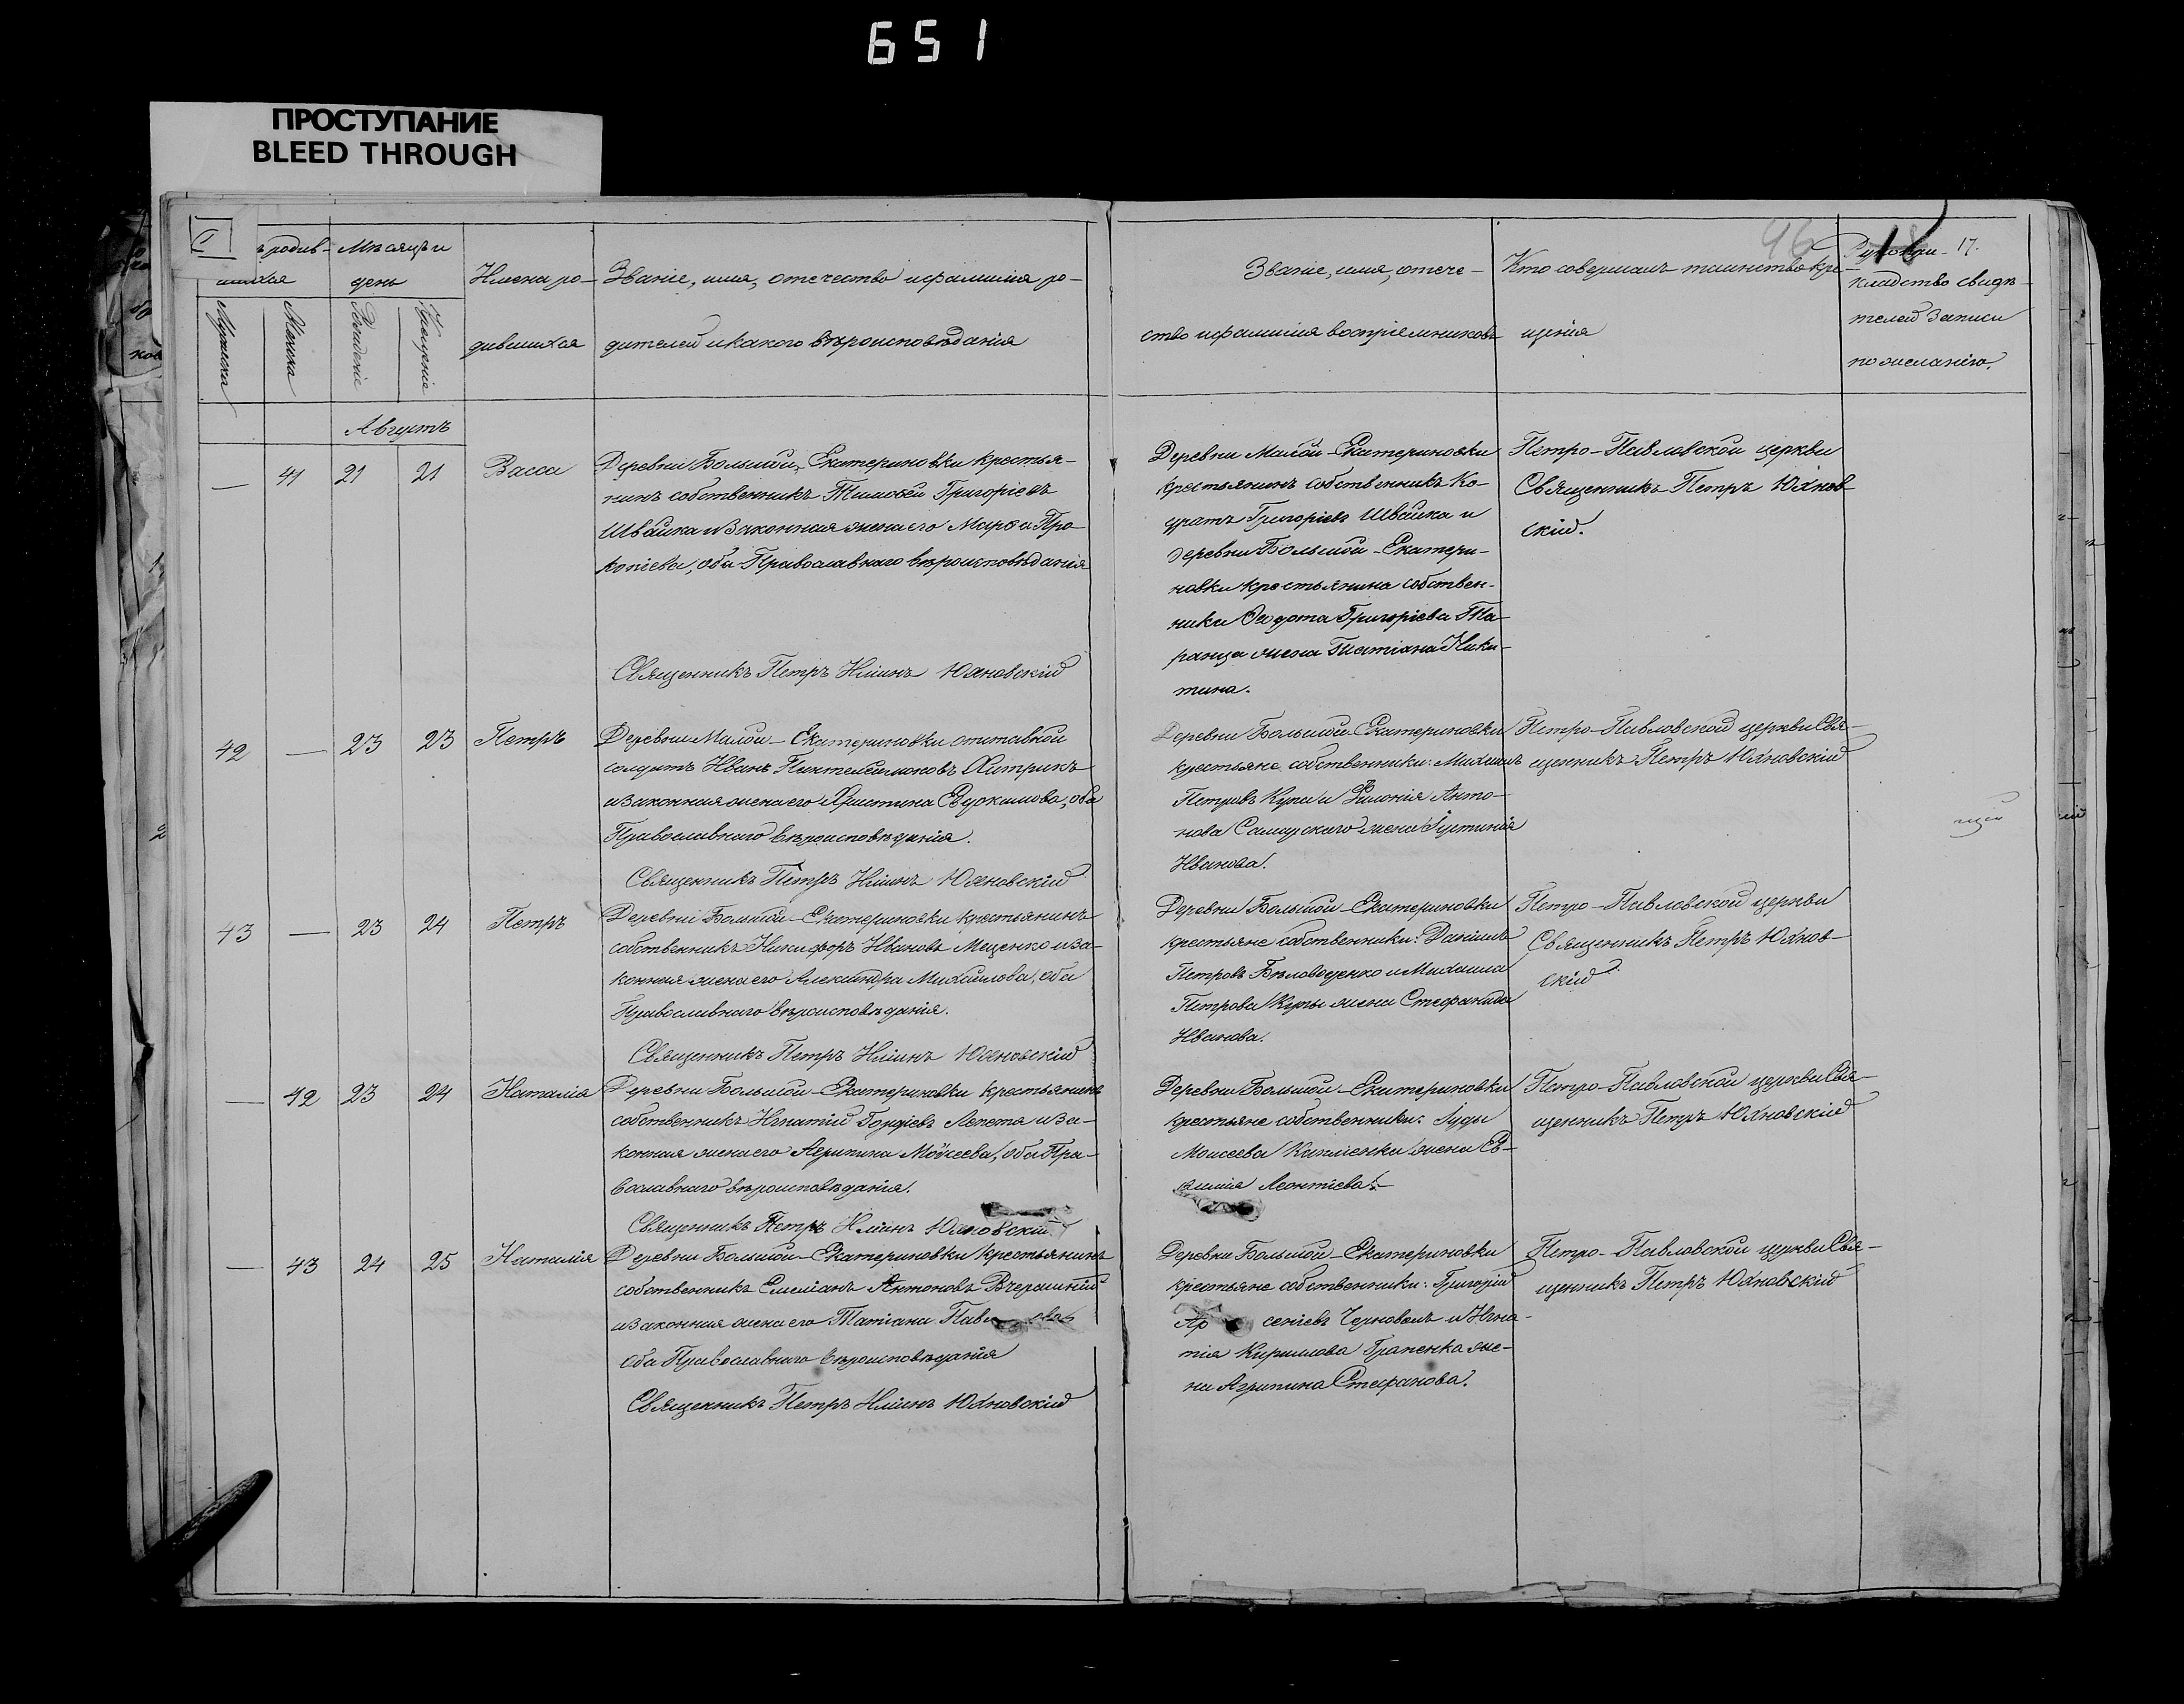 651
ПРОСТУПАНИЕ
BLEED THROUGH
96
18
17.
ъ родив-
шихся
Мужеска
Женска
Мѣсяцъ и
день
Рожденіе
Крещеніе
Имена ро-
дившихся
Званіе, имя, отчество и фамилія ро-
дителей и какого вѣроисповѣданія
Званіе, имя, отече-
ство и фамилія воспріемниковъ
Кто совершалъ таинство кре-
щенія
Рукопри-
кладство свидѣ-
телей записи
по желанію.
Августъ
— 41 21 21 Васса
Деревни Большой-Екатериновки крестья-
нинъ собственникъ Тимофей Григоріевъ
Швайка и законная жена его Марѳа Про-
копіева, оба Православнаго вѣроисповѣданія
Священникъ Петръ Юхновскій
Деревни Малой-Екатериновки
крестьянинъ собственникъ Ко-
дратъ Григоріевъ Швайка и
деревни Большой-Екатери-
новки крестьянина собствен-
ника Ѳедота Григорьева Та-
ранца жена Татіана Ники-
тина.
Петро-Павловской церкви
Священникъ Петръ Юхнов-
скій.
42 — 23 23 Петръ
Деревни Малой-Екатериновки отставной
солдатъ Иванъ Пантелеимоновъ Хитрикъ
и законная жена его Христина Евдокимова, оба
Православнаго вѣроисповѣданія.
Священникъ Петръ Юхновскій
Деревни Большой-Екатериновки
крестьяне собственники: Михаилъ
Петровъ Купа и Филонія Анто-
нова Самарскаго жена Іустинія
Иванова.
Петро-Павловской церкви Свя-
щенникъ Петръ Юхновскій
43 — 23 24 Петръ
Деревни Большой-Екатериновки крестьянинъ
собственникъ Никифоръ Ивановъ Мещенко и за-
конная жена его Александра Михайлова, оба
Православнаго вѣроисповѣданія.
Священникъ Петръ Юхновскій
Деревни Большой-Екатериновки
крестьяне собственники: Даніилъ
Петровъ Бѣловоденко и Михаила
Петрова Купы жена Стефанида
Иванова.
Петро-Павловской церкви
Священникъ Петръ Юхнов-
скій
— 42 23 24 Наталія
Деревни Большой-Екатериновки крестьянинъ
собственникъ Игнатій Гордіевъ Лепета и за-
конная жена его Агрипина Мойсеева, оба Пра-
вославнаго вѣроисповѣданія.
Священникъ Петръ Юхновскій
Деревни Большой-Екатериновки
крестьяне собственники: Іуды
Моисеева жена Ев-
Леонтіева.
Петро-Павловской церкви Свя-
щенникъ Петръ Юхновскій
— 43 24 25 Наталія
Деревни Большой-Екатериновки крестьянинъ
собственникъ Емеліанъ Антоновъ Вчерашній
и законная жена его Татіана Пав ова
оба Православнаго вѣроисповѣданія
Священникъ Петръ Юхновскій
Деревни Большой-Екатериновки
крестьяне собственники: Григорій
Ар сеніевъ Черноволъ и Игна-
тія Кирилова Граненка же-
на Агрипина Стефанова.
Петро-Павловской церкви Свя-
щенникъ Петръ Юхновскій